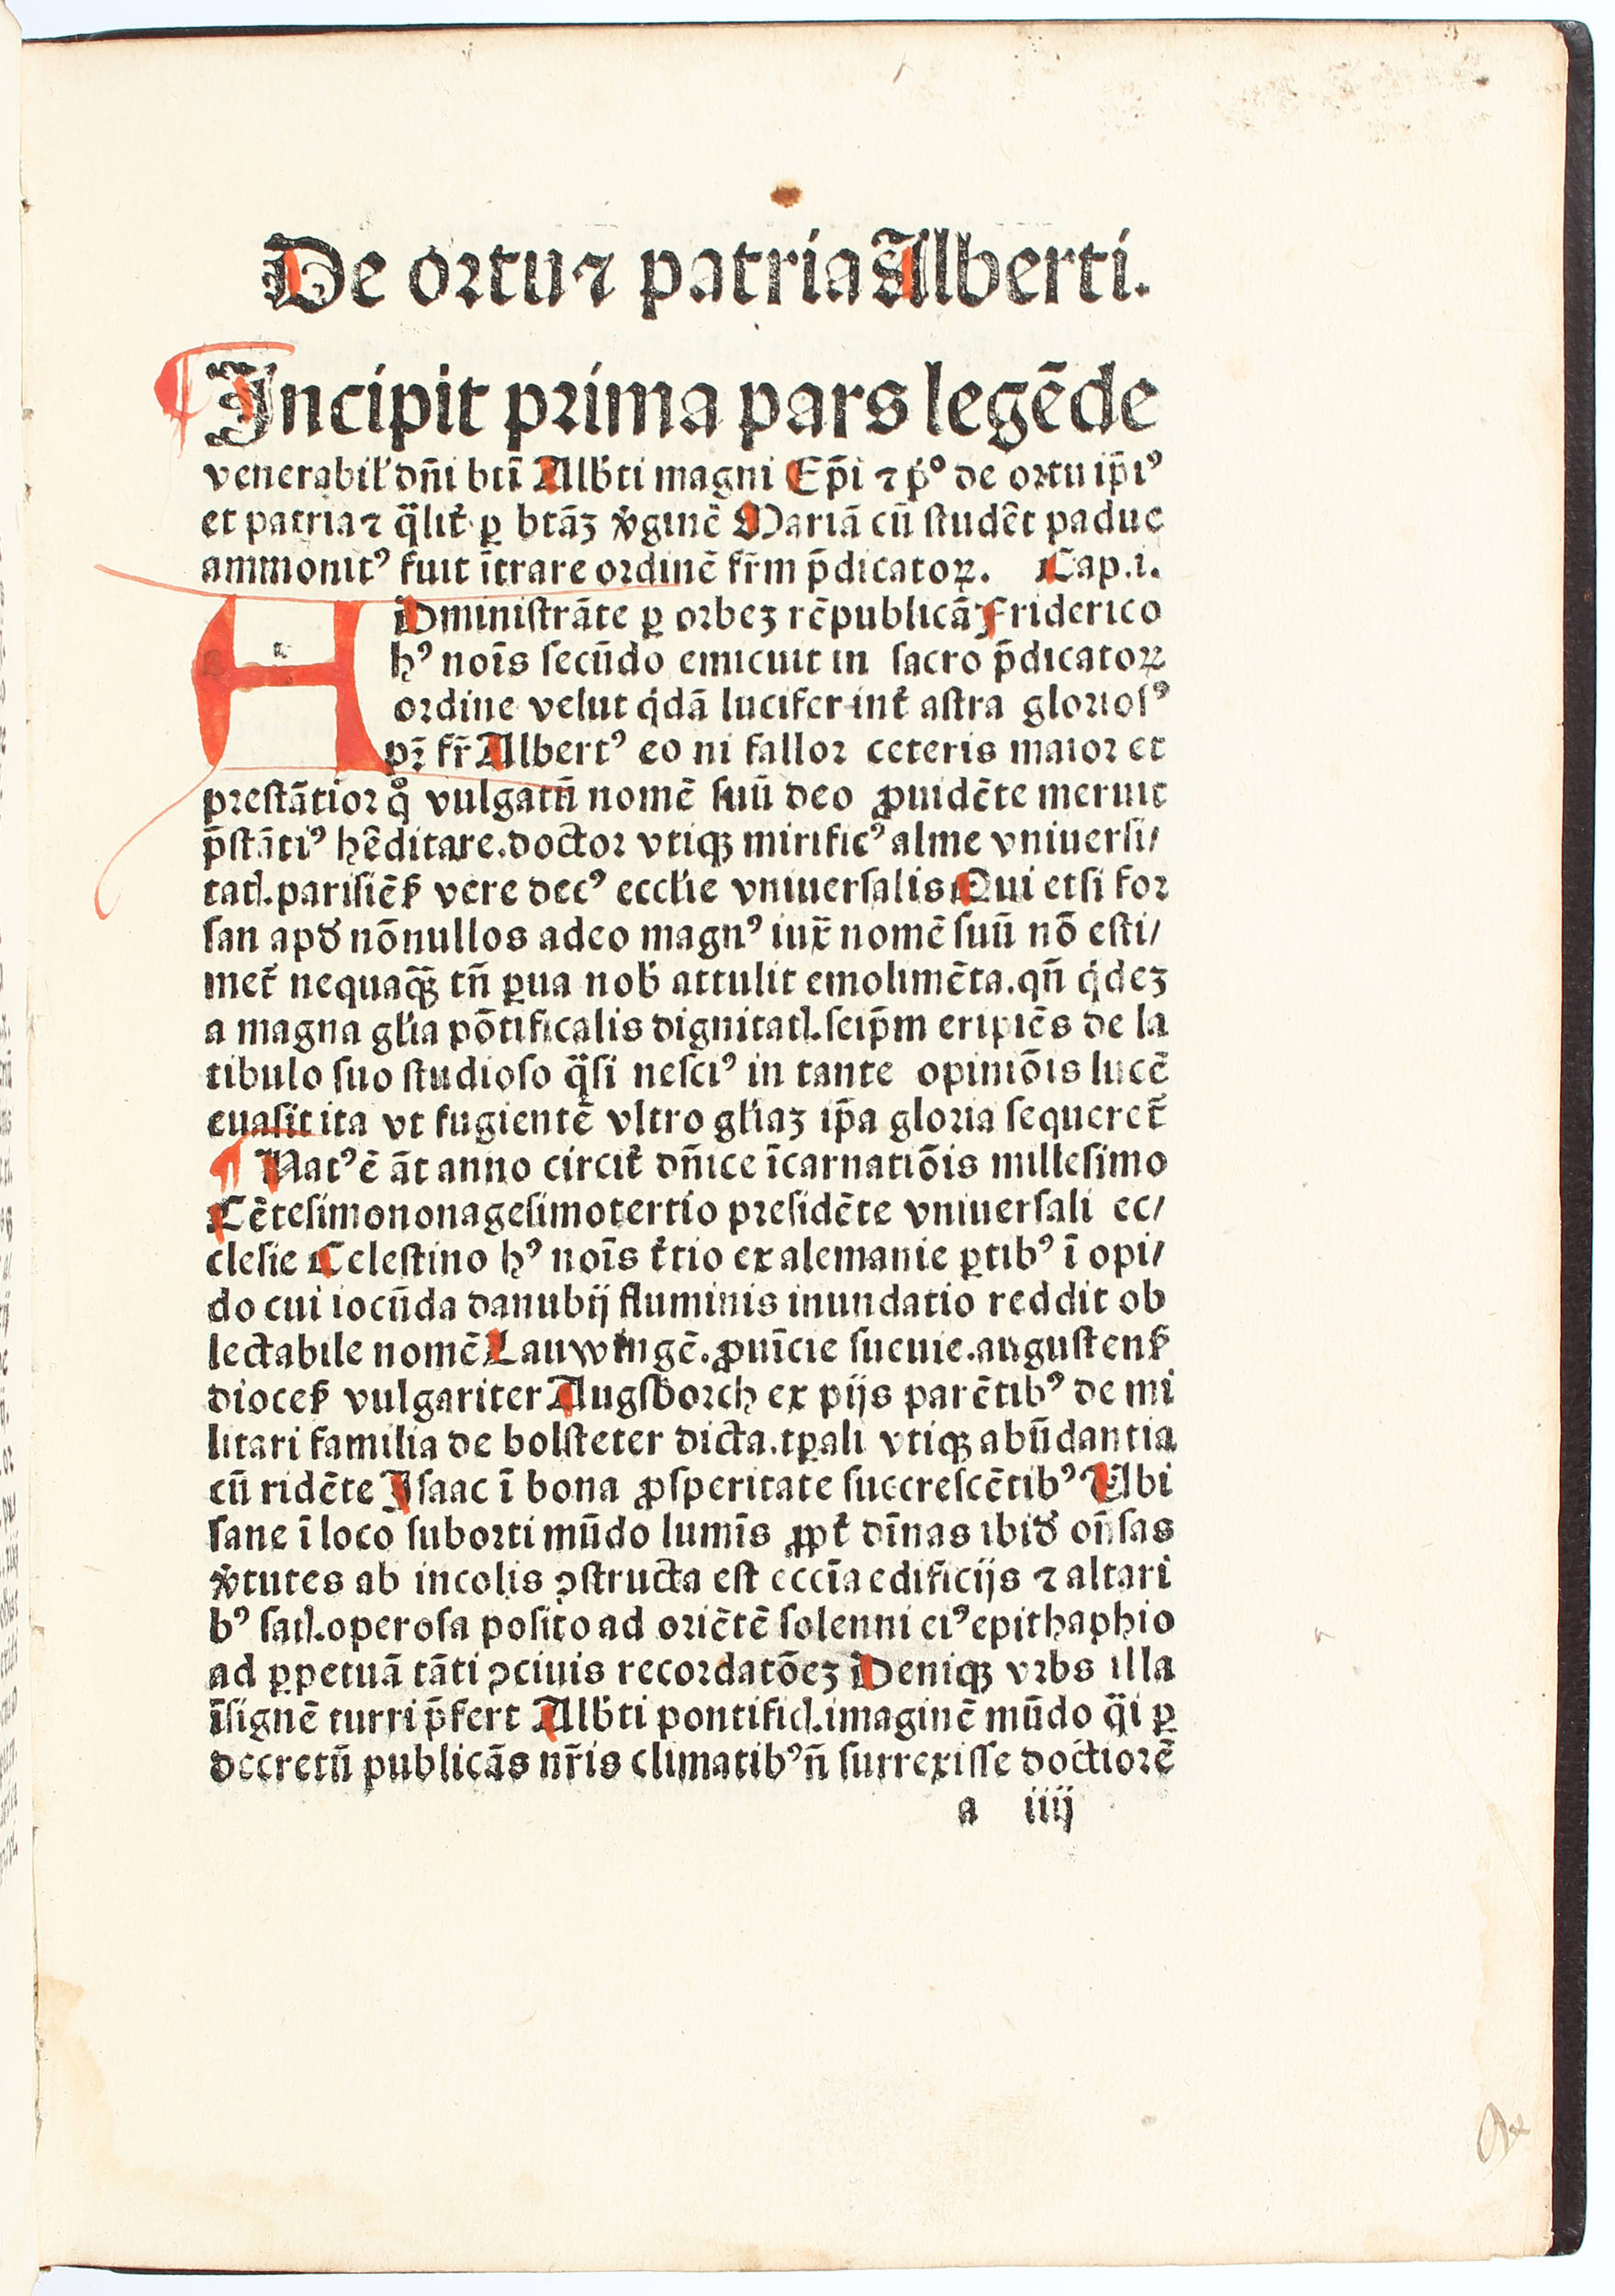 De ortu ⁊ patria Alberti.
Incipit prima pars legēde
venerabil' dn̄i btī Alb'ti magni Ep̄i ⁊ p̓º de ortu ip̄iꝰ
et patria ⁊ q̄lit̓ ꝑ btāꝫ v̓ginē Mariā cū studēt padue
ammonitꝰ fuit ītrare ordinē fr̄m p̄dicatoꝝ. Cap.i.
ADministrāte ꝑ orbeꝫ rēpublicā Friderico
hꝰ noīs secūdo emicuit in sacro p̄dicatoꝝ
ordine velut q̓dā lucifer int̓ astra gloriosꝰ
pr̄ fr̄ Albertꝰ eo ni fallor ceteris maior et
prestātior qͦ vulgatū nomē suū deo ꝓuidēte meruit
p̄stātiꝰ hēditare.doctor vtiqꝫ mirificꝰ alme vniuersi/
tatꝭ.parisiēẜ vere decꝰ eccl'ie vniuersalis Qui etsi for
san apd̓ nōnullos adeo magnꝰ iux̄ nomē suū nō esti/
met̓ nequaqꝫ̄ tn̄ ꝑua nob̓ attulit emolimēta.qn̄ q̓deꝫ
a magna gl'ia pōtificalis dignitatꝭ.seip̄m eripiēs de la
tibulo suo studioso q̄si nesciꝰ in tante opiniōis lucē
euasit ita vt fugientē vltro gl'iaꝫ ip̄a gloria sequeret̄
¶ Natꝰ ē āt anno circit̓ dn̄ice īcarnatiōis millesimo
Cētesimononagesimotertio presidēte vniuersali ec/
clesie Celestino hꝰ noīs t̓tio ex alemanie ꝑtibꝰ ī opi/
do cui iocūda danubij fluminis inundatio reddit ob
lectabile nomē Lauwingē.ꝓuīcie sueuie.augustenẜ
dioceẜ vulgariter Augsborch ex pijs parētibꝰ de mi
litari familia de bolsteter dicta.tꝑali vtiqꝫ abūdantia
cū ridēte Isaac ī bona ꝓsperitate succrescētibꝰ Vbi
sane ī loco suborti mūdo lumīs ꝓpt̓ dīnas ibid̓ on̄sas
v̓tutes ab incolis ꝯstructa est eccīa edificijs ⁊ altari
bꝰ satꝭ.operosa posito ad oriētē solenni eiꝰ epithaphio
ad ꝑpetuā tāti ꝯciuis recordatōeꝫ Deniqꝫ vrbs illa
īsignē turri p̄fert Alb'ti pontificꝭ.imaginē mūdo q̄i ꝑ
decretū publicās nr̄is climatibꝰ n̄ surrexisse doctiorē
a iiij